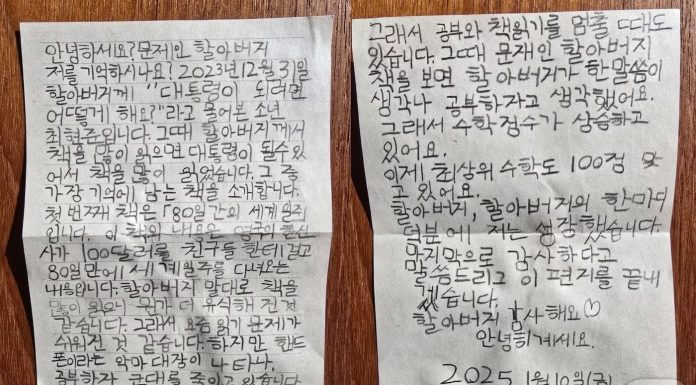 안녕하세요? 문재인 할아버지
저를 기억하시나요? 2023년12월31일
할아버지께 "대통령이 되려면
어떻게 해요?"라고 물어본 소년
최현준입니다. 그때 할아버지께서
책을 많이 읽으면 대통령이 될수있
어서 책을 많이 읽었습니다. 그 중
가장 기억에 남는 책을 소개합니다.
첫 번째 책은 「80일간의 세계 일주
입니다. 이 책의 내용은 영국의
사가 100달러를 친구들 한테 걸고
80일만에 세계일주를 다녀오는
내용입니다. 할아버지 말대로 책을
많이 읽으니 뭔가 더 유식해 진 것
같습니다. 그래서 요즘 읽기 문제가
쉬워진 것 같습니다. 하지만 핸드
폰이라는 악마 대장이 나타나.
공부하자 군대를 죽이고 있습니다
그래서 공부와 책읽기를 멈출 때도
있습니다. 그때 문재인 할아버지
책을 보면 할아버지가 한말씀이
생각나 공부하자고 생각했어요.
그래서 수학점수가 상승하고
있어요.
이제 최상위 수학도 100점 맞
고 있어요.
할아버지, 할아버지의 한마디
덕분에 저는 성장했습니다.
마지막으로 감사하다고
말씀드리고 이 편지를 끝내
겠습니다.
할아버지 감사해요♡
안녕히계세요.
2025 1월10일(금)